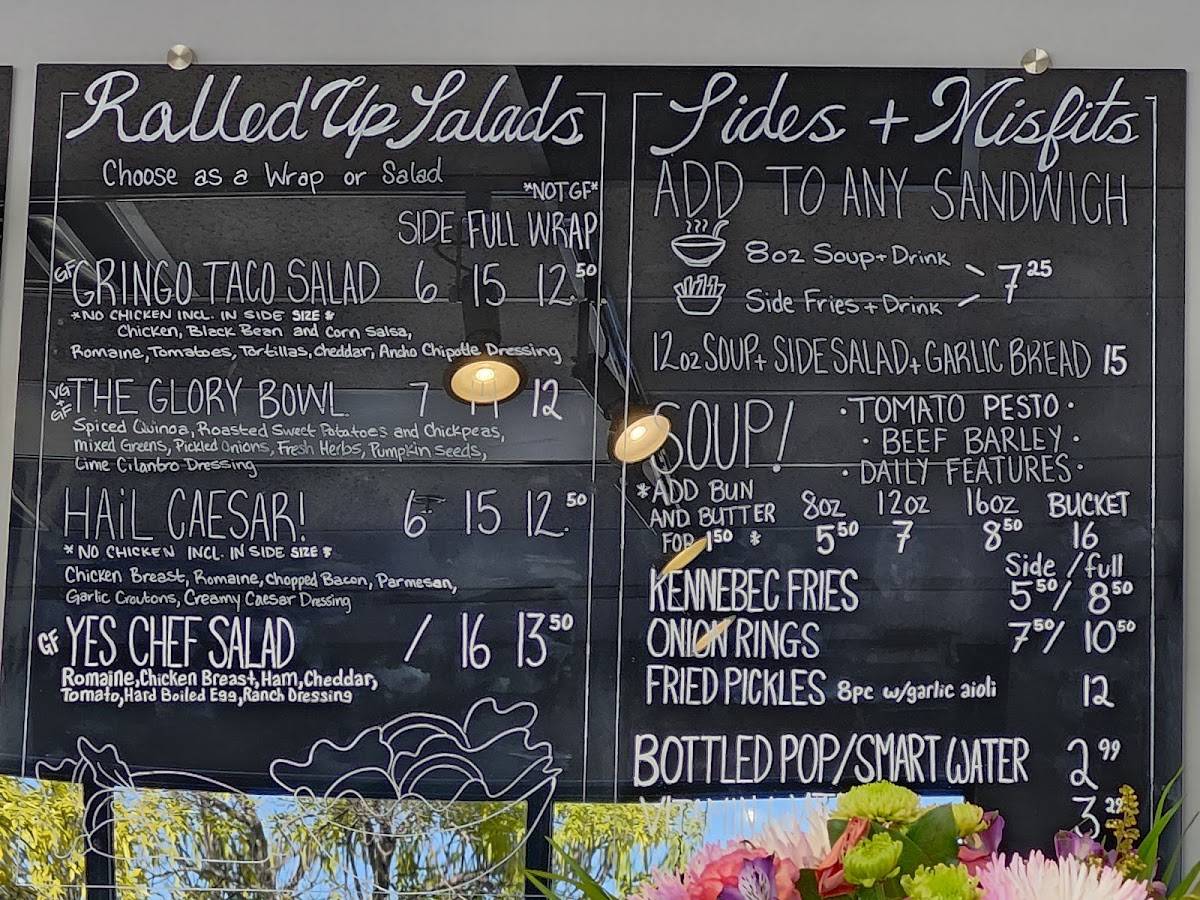 Rolled Up Salads
Choose as a Wrap or Salad
*NOT GF*
SIDE FULL WRAP
GF GRINGO TACO SALAD 6 15 12.50
*NO CHICKEN INCL. IN SIDE SIZE*
Chicken, Black Bean and Corn Salsa,
Romaine, Tomatoes, Tortillas, Cheddar, Ancho Chipotle Dressing
VG + GF THE GLORY BOWL 7 12
Spiced Quinoa, Roasted Sweet Potatoes and Chickpeas,
mixed Greens, Pickled Onions, Fresh Herbs, Pumpkin Seeds,
Lime Cilantro Dressing
HAIL CAESAR! 6 15 12.50
*NO CHICKEN INCL. IN SIDE SIZE*
Chicken Breast, Romaine, Chopped Bacon, Parmesan,
Garlic Croutons, Creamy Caesar Dressing
GF YES CHEF SALAD / 16 13 50
Romaine, Chicken Breast, Ham, Cheddar,
Tomato, Hard Boiled Egg, Ranch Dressing
Sides + Misfits
ADD TO ANY SANDWICH
8oz Soup + Drink
7 25
Side Fries + Drink
12oz SOUP + SIDE SALAD + GARLIC BREAD 15
SOUP!
·TOMATO PESTO·
·BEEF BARLEY·
·DAILY FEATURES·
*ADD BUN
AND BUTTER
FOR 1 50 *
8oz 12oz 16oz BUCKET
5 50 7 8 50 16
Side / full
KENNEBEC FRIES 5 50 / 8 50
ONION RINGS 7 50 / 10 50
FRIED PICKLES 8pc w/garlic aioli 12
BOTTLED POP/SMART WATER 2 99
3